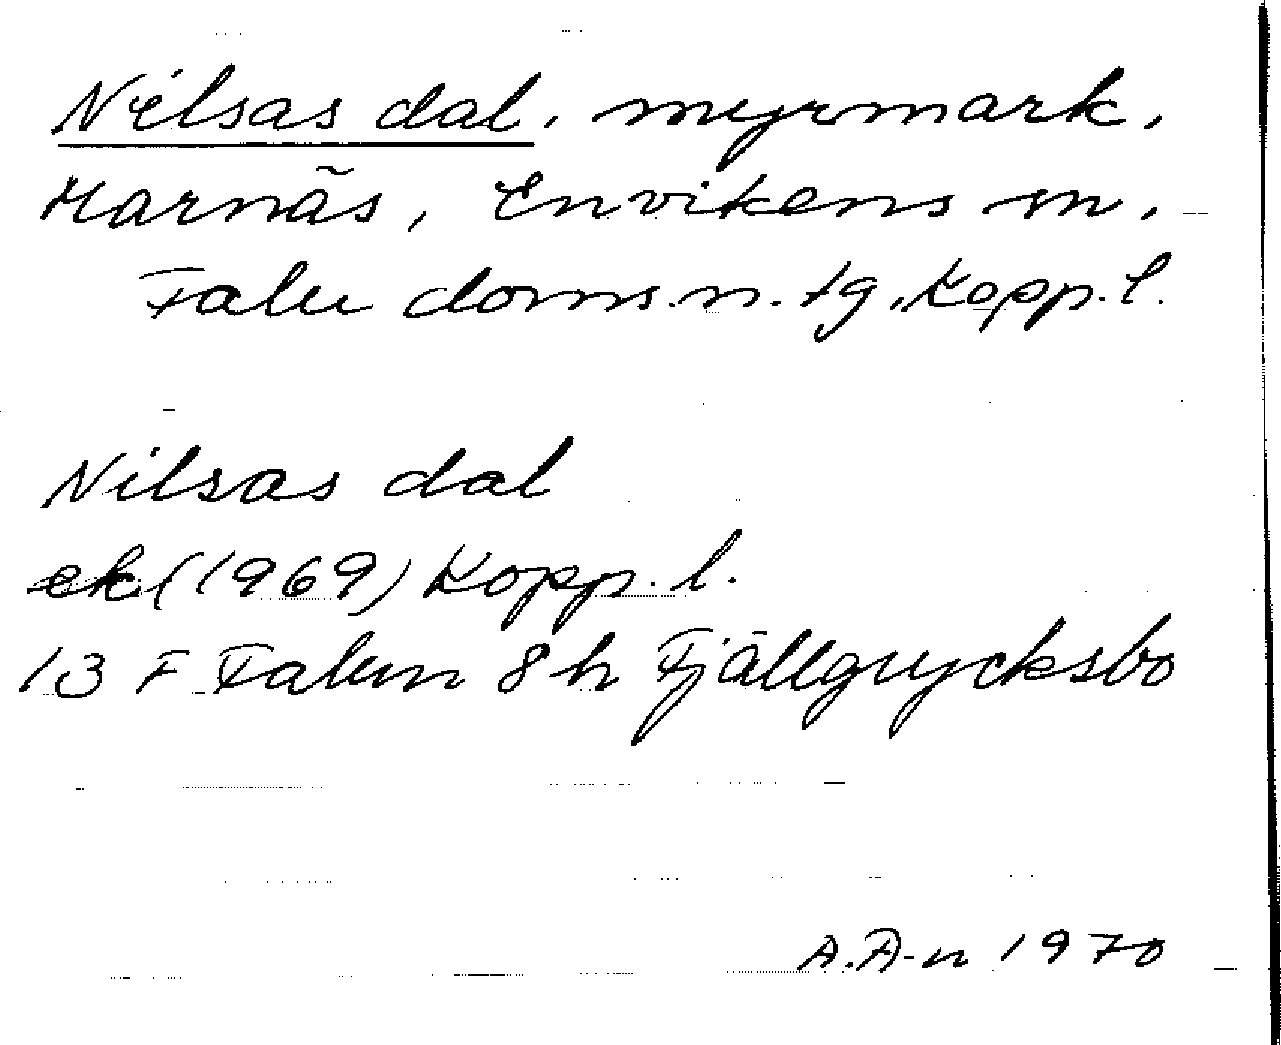 Nilsas dal, myrmark,
Marnäs, Envikens sn,
Falu doms.n. tg, Kopp. l.
Nilsas dal
ek (1969) Kopp. l.
13 F Falun 8 h Fjällgrycksbo
A.A-n 1970